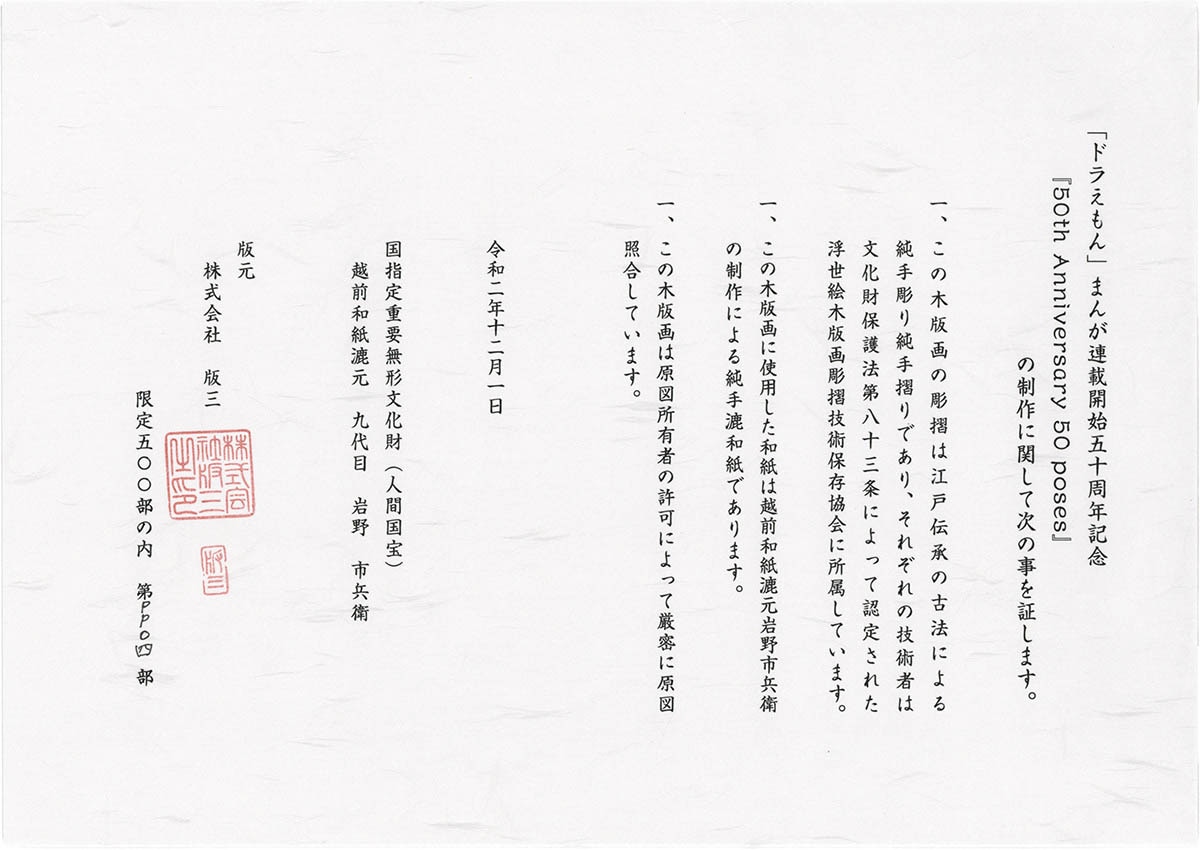 「ドラえもん」まんが連載開始五十周年記念
『50th Anniversary 50 poses』
の制作に関して次の事を証します。
一、この木版画の彫摺は江戸伝承の古法による
純手彫り純手摺りであり、それぞれの技術者は
文化財保護法第八十三条によって認定された
浮世絵木版画彫摺技術保存協会に所属しています。
一、この木版画に使用した和紙は越前和紙漉元岩野市兵衛
の制作による純手漉和紙であります。
一、この木版画は原図所有者の許可によって厳密に原図
照合しています。
令和二年十二月一日
国指定重要無形文化財（人間国宝）
越前和紙漉元 九代目 岩野 市兵衛
版元
株式会社 版三
株式会社版三之印
版三
限定五〇〇部の内 第PP〇四部